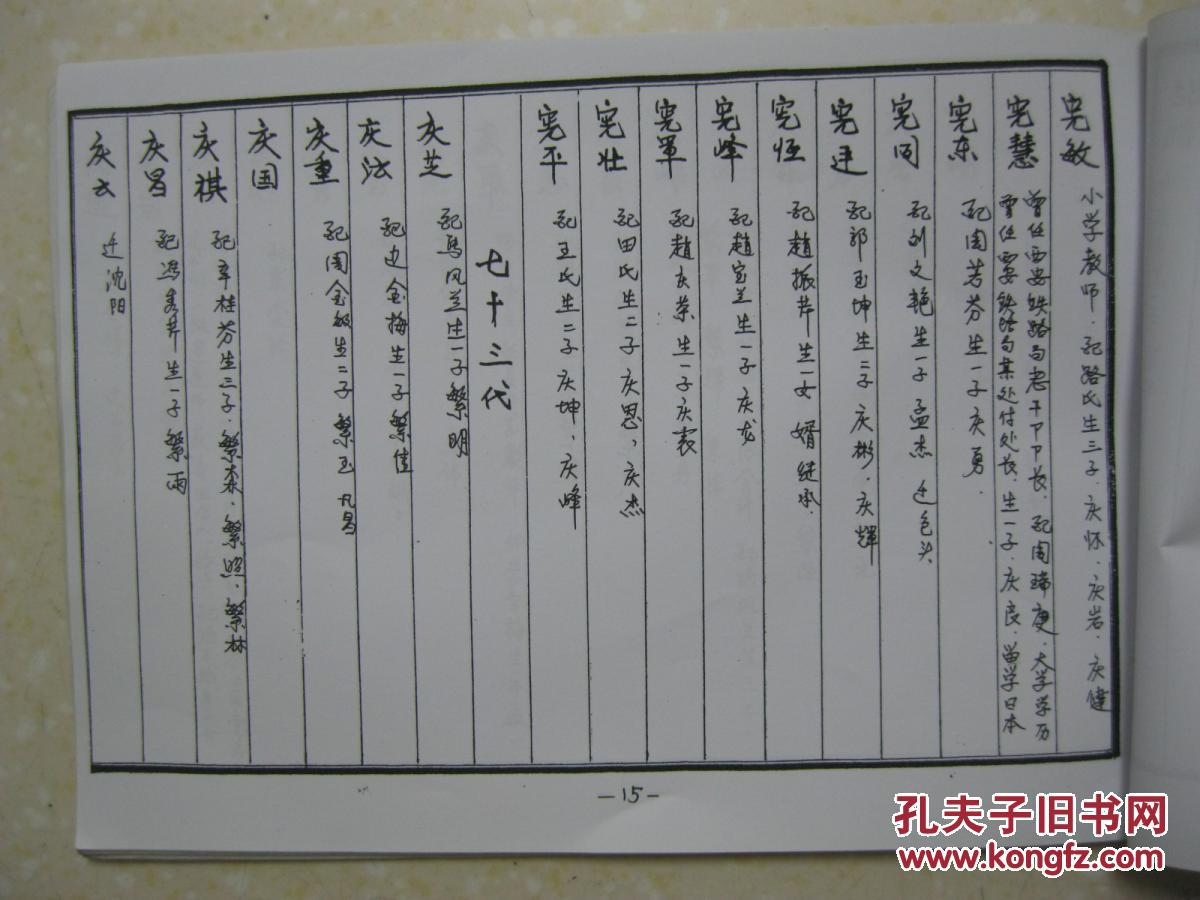 宪敏 小学教师.配路氏生三子.庆怀.庆岩.庆健
宪慧 曾任西安铁路局老干部部长.配周瑞.大学学历
曾任西安铁路局某处付处长.生一子.庆良.留学日本
宪东 配周芳芬生一子庆勇.
宪同 配刘文艳生一子孟杰 迁包头
宪廷 配郭玉坤生二子庆彬.庆辉
宪恒 配赵振芹生一女婿继承.
宪峰 配赵宝兰生一子庆龙
宪军 配赵庆荣生一子庆
宪壮 配田氏生二子庆恩,庆杰
宪平 配王氏生二子庆坤,庆峰
七十三代
庆芝 配马凤兰生一子繁明
庆法 配边金梅生一子繁佳
庆重 配周金敏生二子繁玉 凡昌
庆国
庆祺 配辛桂芬生三子.繁森.繁照.繁林
庆昌 配冯秀芹生一子繁雨
庆云 迁沈阳
-15-
孔夫子旧书网
www.kongfz.com